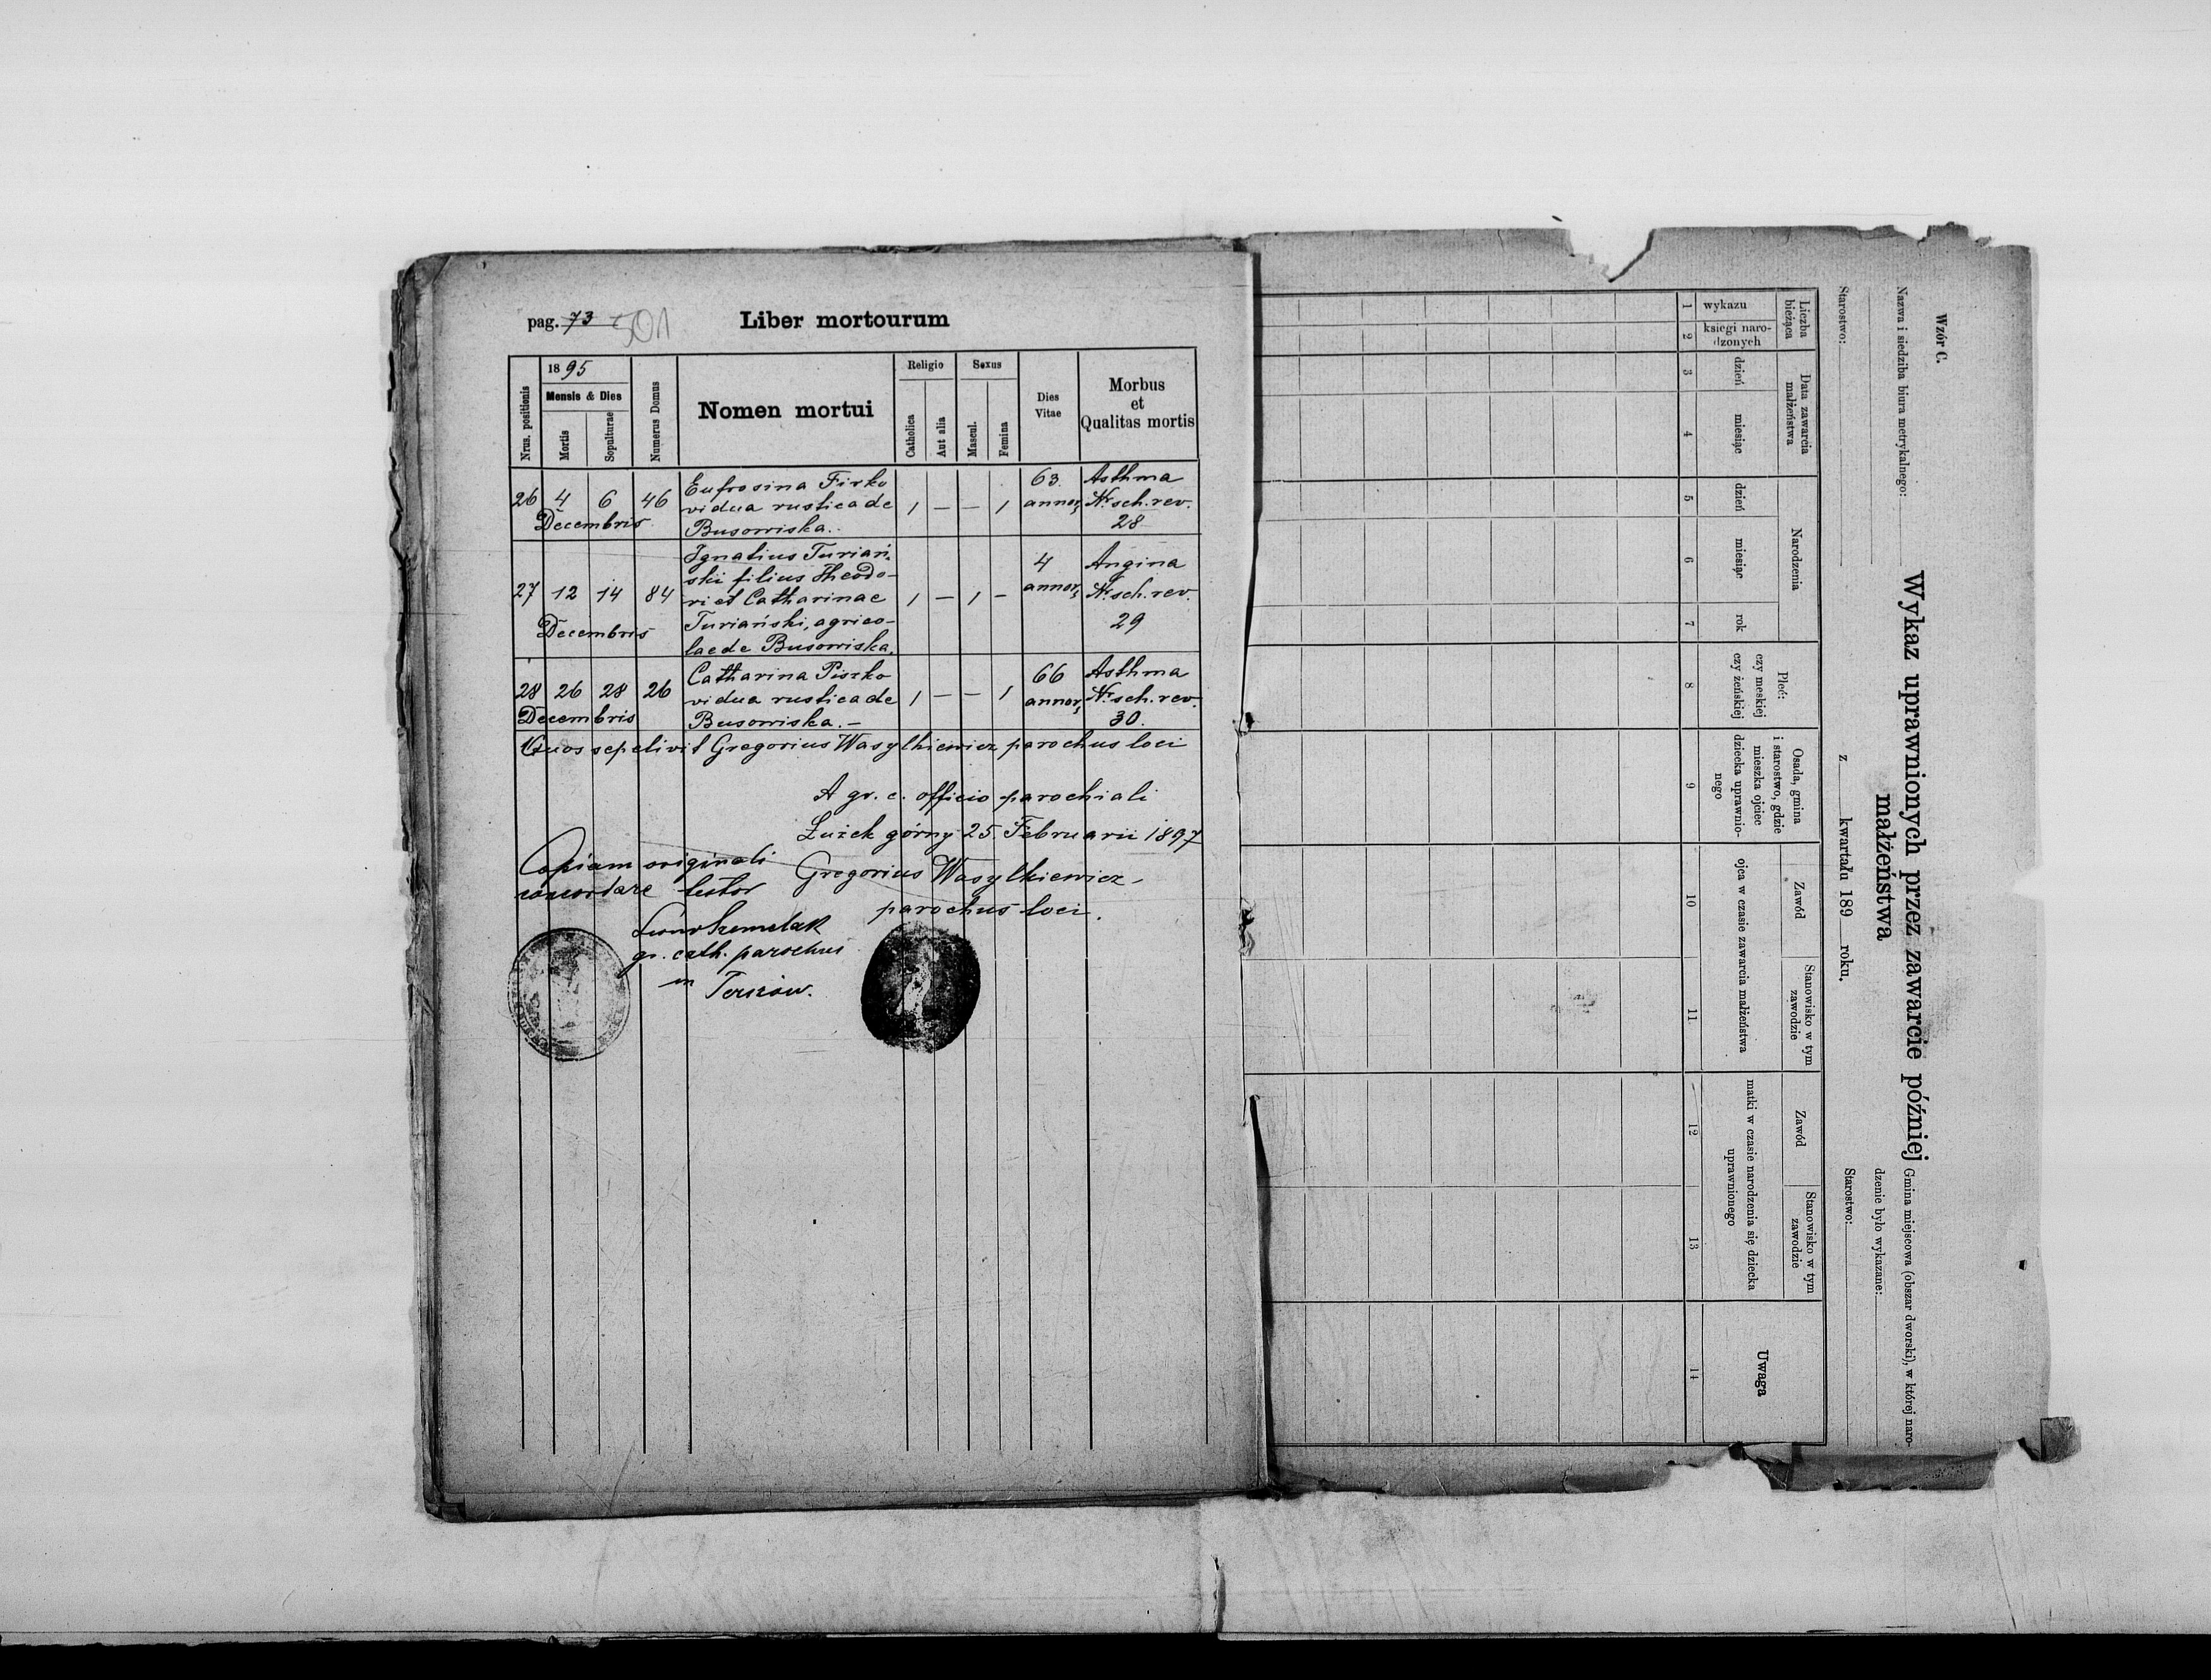 pag. 73 501
Liber mortourum
Nrus. positionis
1895
Mensis & Dies
Mortis
Sepulturae
Numerus Domus
Nomen mortui
Religio
Catholica
Aut alia
Sexus
Mascul.
Femina
Dies Vitae
Morbus
et
Qualitas mortis
26 4 6 46 Eufrosina Firko 63 Asthma
vidua rustica de 1 — — 1 annor. Nr. sch. rev.
Decembris Busowiska. 28
Ignatius Turiań-
ski filius Theodo- 4 Angina
27 12 14 84 ri et Catharinae 1 — 1 — annor. Nr. sch. rev.
Decembris Turiański, agrico- 29
lae de Busowiska.
Catharina Piszko 66 Asthma
28 26 28 26 vidua rustica de 1 — — 1 annor. Nr. sch. rev.
Decembris Busowiska.— 30.
Quos sepelivit Gregorius Wasylkiewicz parochus loci
A gr. c. officio parochiali
Łużek górny 25 Februarii 1897
Gregorius Wasylkiewicz
parochus loci.
Copiam originali
concordare testor
gr. cath. parochus
in Terszów.
Wzór C.
Nazwa i siedziba biura metrykalnego:
Starostwo:
Wykaz uprawnionych przez zawarcie później
małżeństwa
z kwartału 189 roku.
Gmina miejscowa (obszar dworski), w której naro-
dzenie było wykazane:
Starostwo:
Liczba
bieżąca
wykazu
księgi naro-
dzonych
Data zawarcia
małżeństwa
dzień
miesiąc
Narodzenia
dzień
miesiąc
rok
Płeć:
czy męskiej
czy żeńskiej
Osada, gmina
i starostwo, gdzie
mieszka ojciec
dziecka uprawnio-
nego
Zawód
Stanowisko w tym
zawodzie
ojca w czasie zawarcia małżeństwa
Zawód
Stanowisko w tym
zawodzie
matki w czasie narodzenia się dziecka
uprawnionego
Uwaga
1 2 3 4 5 6 7 8 9 10 11 12 13 14